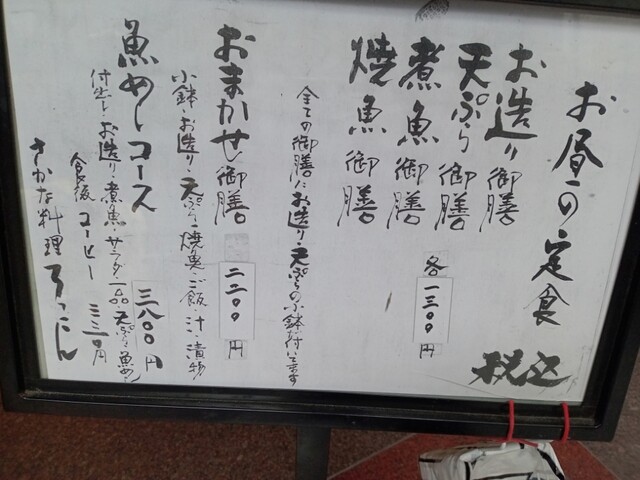 お昼の定食
税込
お造り御膳
天ぷら御膳
煮魚御膳
焼魚御膳
各一三〇〇円
全ての御膳にお造り・天ぷらの小鉢が付いてます
おまかせ御膳
二二〇〇円
小鉢・お造り・天ぷら・焼魚・ご飯・汁・漬物
魚めしコース
三八〇〇円
付出し・お造り・煮魚・サラダ・一品・天ぷら・魚めし
食後コーヒー 三三〇円
さかな料理